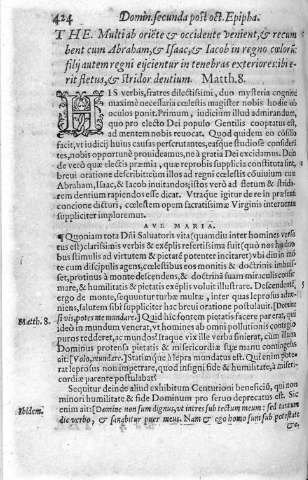 424 Domin. secunda post oct. Epipha.
THE. Multi ab oriẽte & occidente venient, & recum
bent cum Abraham, & Isaac, & Iacob in regno cœlorũ:
filij autem regni eijcientur in tenebras exteriores: ibi e-
rit fletus, & stridor dentium. Matth. 8.
HIS verbis, fratres dilectissimi, duo mysteria cognitu
maximè necessaria cœlestis magister nobis hodie ob
oculos ponit. Primum, iudicium illud admirandum,
quo pro electo Dei populo Gentilis cooptatus est,
ad mentem nobis reuocat. Quod quidem eo cõsilio
facit, vt iudicij huius causas perscrutantes, easque studiosè consideran
tes, nobis opportunè prouideamus, nè à gratia Dei excidamus. Dein
de verò quæ electis præmia, quæ reprobis supplicia constituta sint,
breui oratione describit: cùm illos ad regni cœlestis cõuiuium cum
Abraham, Isaac, & Iacob inuitandos; istos verò ad fletum & strido-
rem dentium rapiendos esse dicat. Vtraque igitur de re in præsenti
concione disturi, cœlestem opem sacratissimæ Virginis interuentu
suppliciter imploremus.
AVE MARIA.
¶ Quoniam tota Dñi Saluatoris vita (quandiu inter homines versa-
tus est) clarissimis verbis & exẽplis refertissima fuit (quò nos huius
bus stimulis ad virtutem & pietatẽ potenter incitaret) vbi diu in mõ
te cum discipulis agens, cœlestibus eos monitis & doctrinis imbuis-
set, protinus à monte descendens, & doctrinã suam miraculis confir-
mare, & humilitatis & pietatis exẽplis voluit illustrare. Descendenti
ergo de monte, sequuntur turbæ multæ, inter quas leprosus adue-
niens, salutem sibi suppliciter hac breui oratione postulauit. [Domine
Matth. 8. si vis, potes me mundare.] Quid hîc faceret pietatis facere parens, qui
ideò in mundum venerat, vt homines ab omni pollutionis contagio
puros redderet, ac mundos? Itaque vix ille verba finierat, cùm illum
Dominus protensa pietatis & misericordiæ suæ manu contingens
ait: [Volo, mundare.] Statimque lepra mundatus est. Qui enim pote-
rat leprosus non impetrare, quod insigni fide & humilitate, à miseri-
cordiæ parente postulabat?
Sequitur deinde aliud exhibitum Centurioni beneficiũ, qui non
minori humilitate & fide Dominum pro seruo deprecatus est. Sic
Ibidem. enim ait: [Domine non sum dignus, vt intres sub tectum meum: sed tantùm
dic verbo, & sanabitur puer meus. Nam & ego homo sum sub potestate
&c.